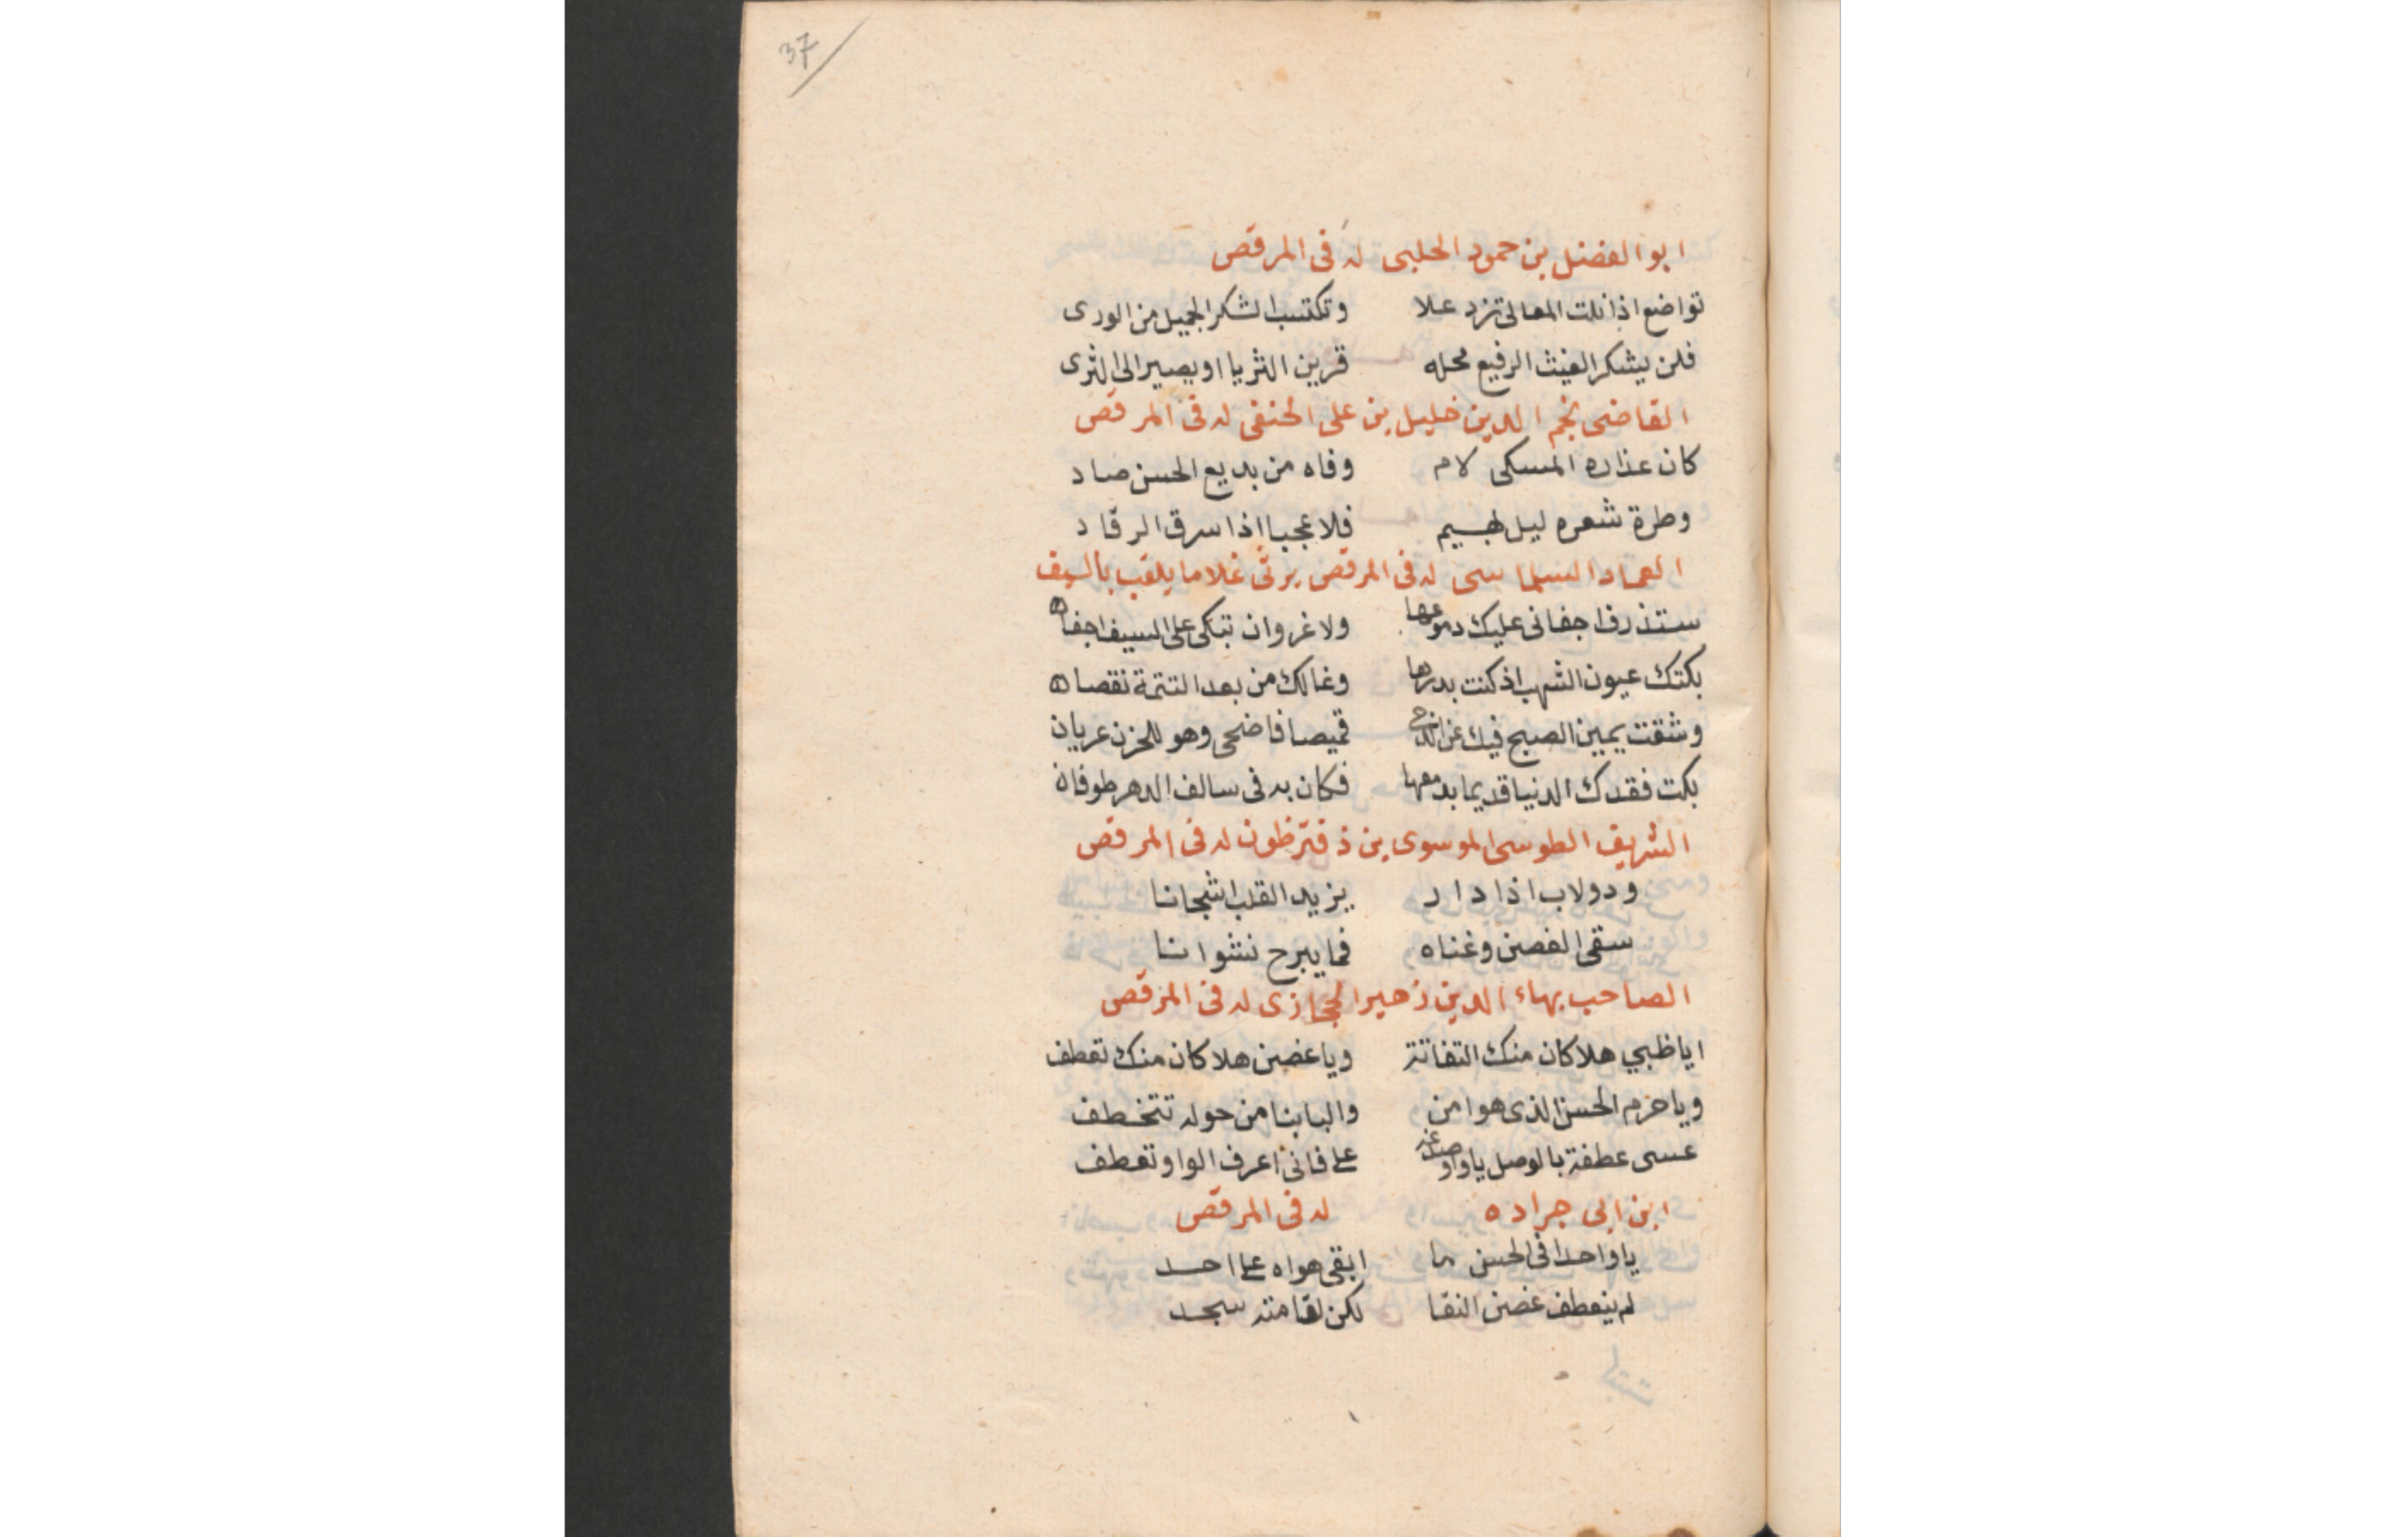 37
ابو الفضل بن حمود الحلبى له فى المرقص
تواضع اذا نلت المعالى تزد علا وتكتسب الشكر الجميل من الورى
فلن يشكر الغيث الرفيع محله قرين الثريا او يصير الى الثرى
القاضى نجم الدين خليل بن على الحنفى له فى المرقص
كان عذاره المسكى لام وفاه من بديع الحسن صاد
وطرة شعره ليل بهيم فلا عجبا اذا سرق الرقاد
العماد السلماسى له فى المرقص يرثى غلاما يلقب بالسيف
ستذرف اجفانى عليك دموعها ولا غروان تبكى على السيف اجفان
بكتك عيون الشهب اذ كنت بدرها وغالك من بعد التتمة نقصان
وشقت يمين الصبح فيك عن الدجى قميصا فاضحى وهو للحزن عريان
بكت فقدك الدنيا قديما بدمعها فكان به فى سالف الدهر طوفان
الشريف الطوسى الموسوى بن دفترخون له فى المرقص
ودولاب اذا دار يزيد القلب اشجانا
سقى الغصن وغناه فما يبرح نشوانا
الصاحب بهاء الدين زهير الحجازى له فى المرقص
اياظبي هلا كان منك التفاتة ويا غصن هلا كان منك تعطف
ويا حرم الحسن الذى هوا من والبابنا من حوله تتخطف
عسى عطفة بالوصل ياواو صدغه على فانى اعرف الواو تعطف
ابن ابى جراده له فى المرقص
يا واحدا فى الحسن ما ابقى هواه على احد
لم ينعطف غصن النقا لكن لقامته سجد